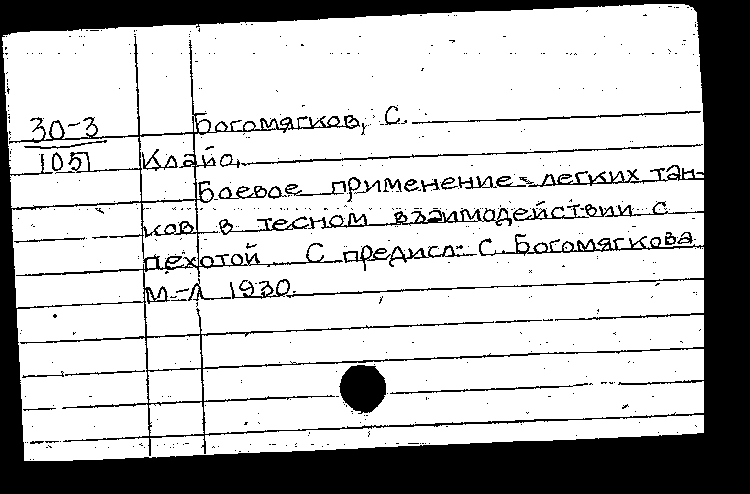 30-3
1051
Богомягков, С.
Клайо,
Боевое применение легких тан-
ков в тесном взаимодействии с
пехотой. С предисл. С. Богомягкова
М-Л 1930.